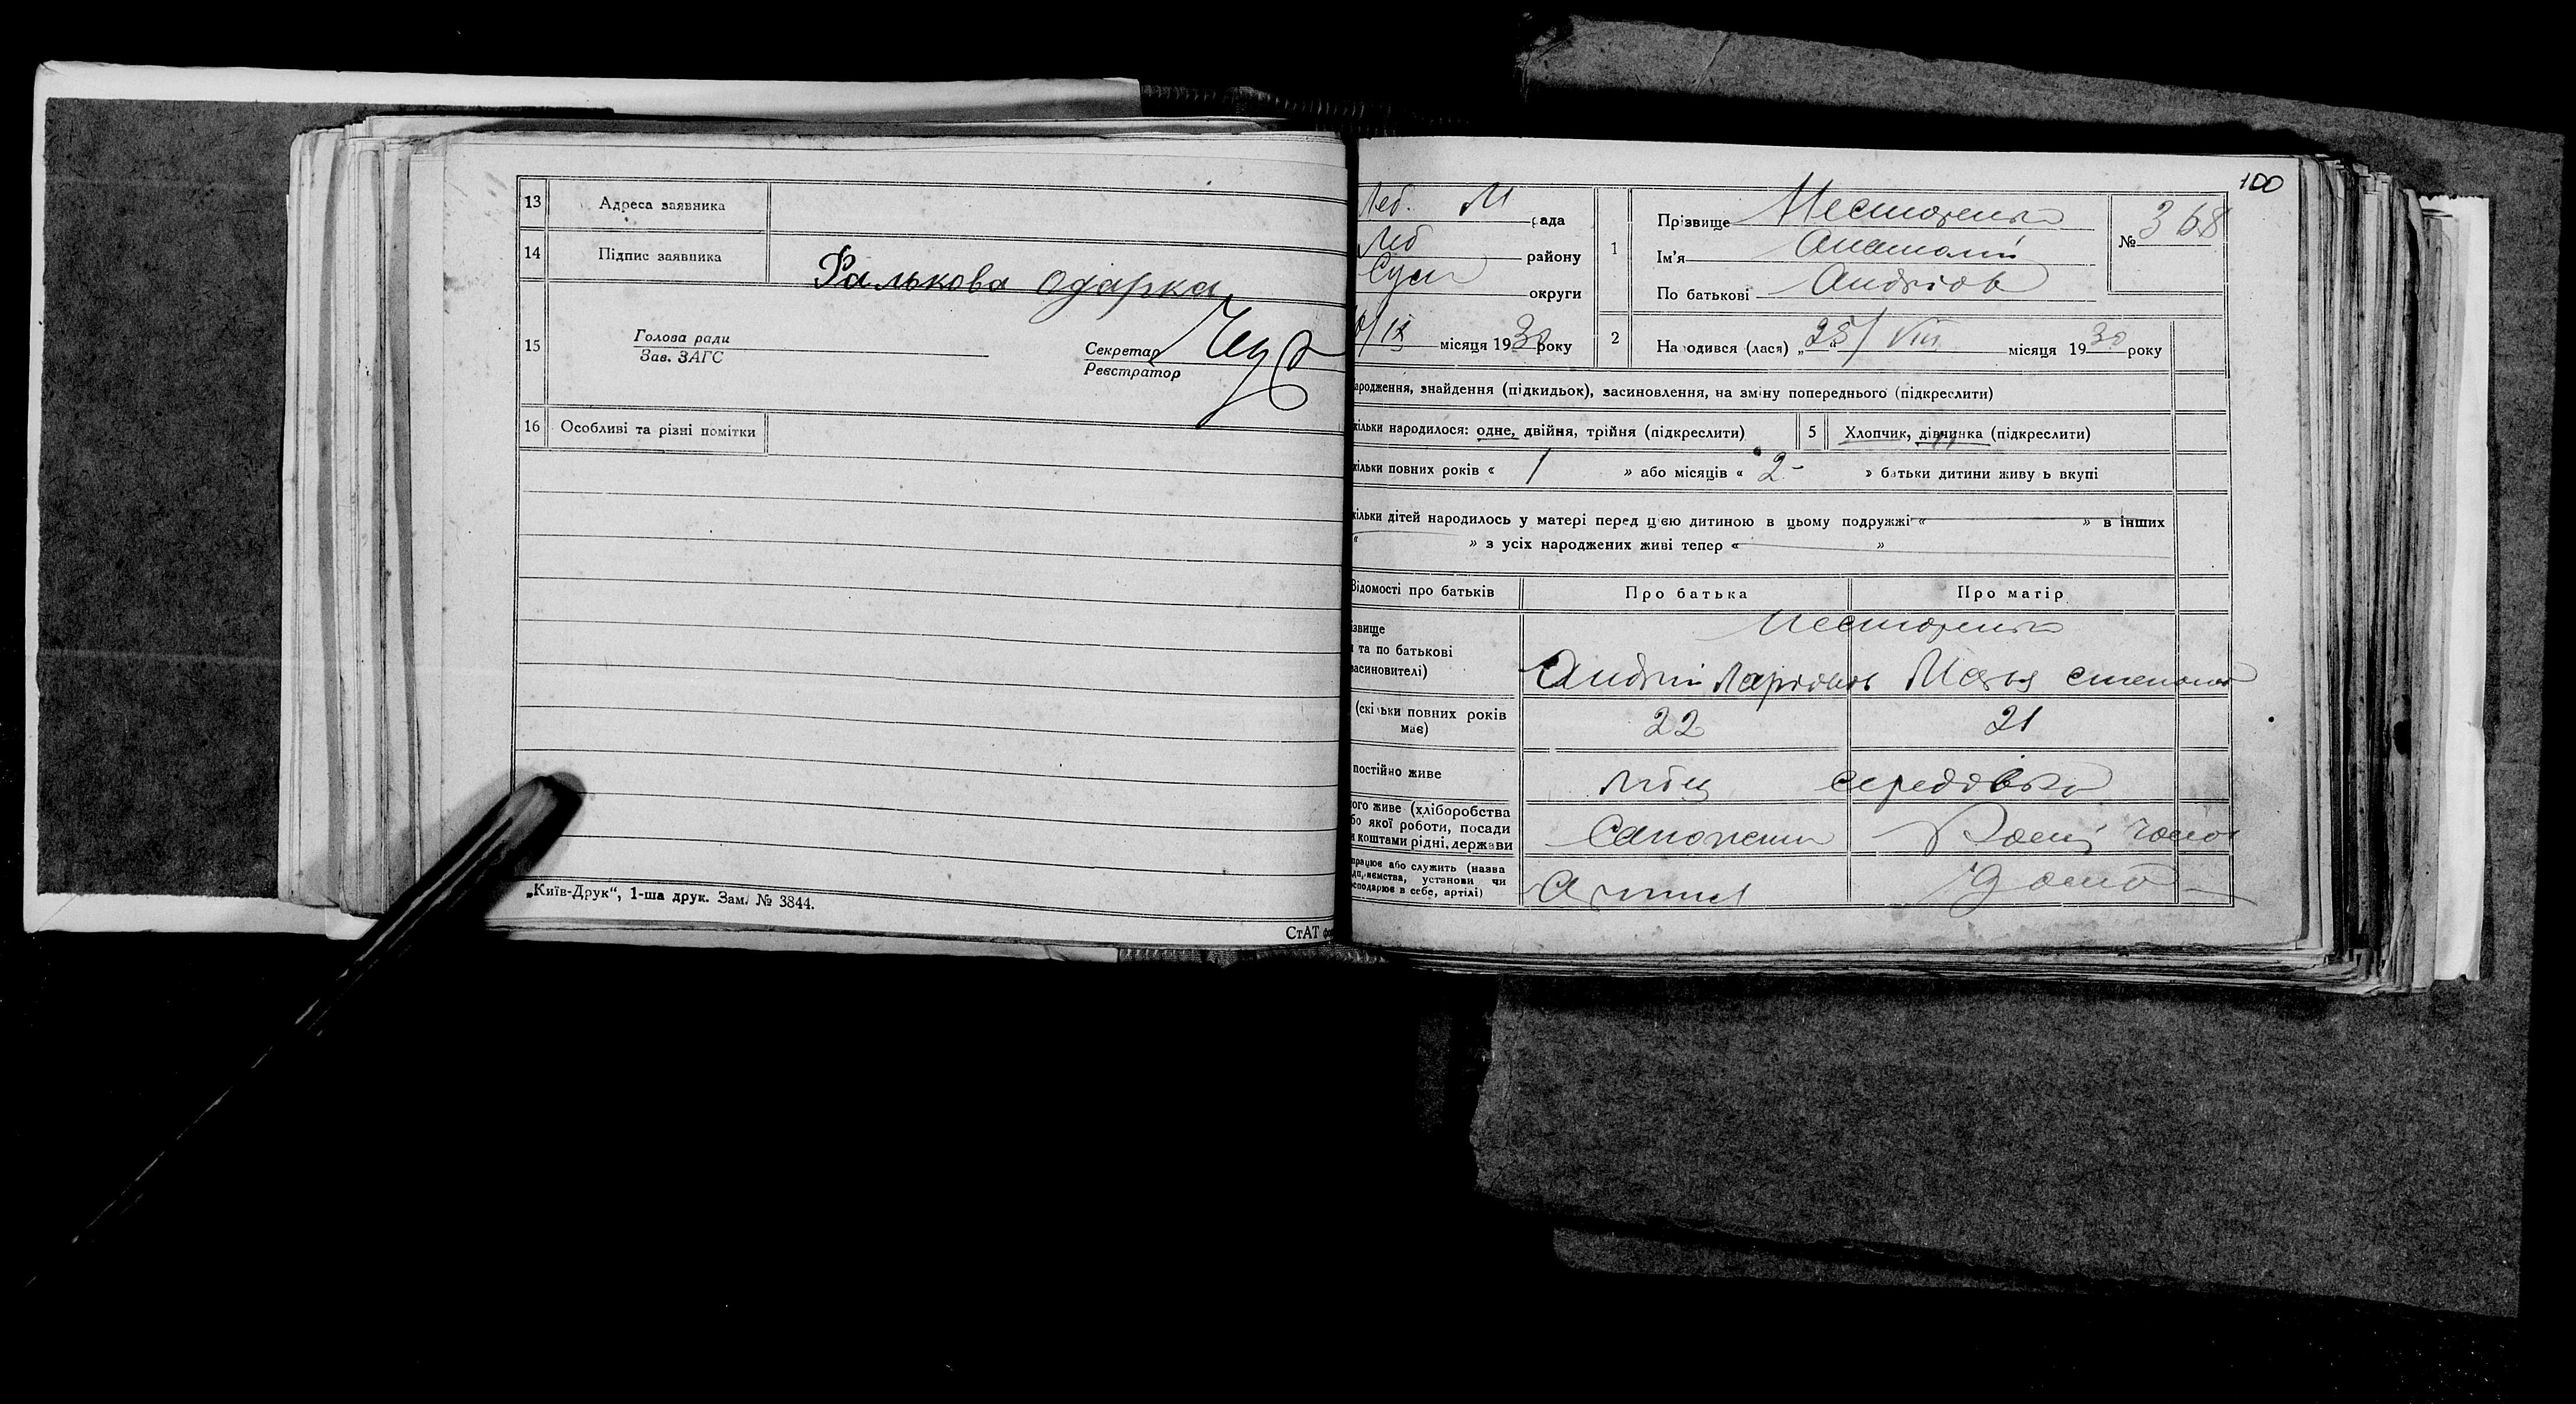 13 Адреса заявника
14 Підпис заявника
Фалькова Одарка
15 Голова ради
Зав. ЗАГС
Секретар
Реєстратор
16 Особливі та різні помітки
„Київ-Друк“, 1-ша друк. Зам. № 3844.
СтАТ
100
Леб. М рада
Леб району
Сум округи
місяця 1930 року
1 Прізвище Нестеренко
Ім'я Анатолій
По батькові Андріов
№ 368
2 Народився (лася) „25/VIII місяця 1930 року
ародження, знайдення (підкидьок), засиновлення, на зміну попереднього (підкреслити)
кільки народилося: одне, двійня, трійня (підкреслити) 5 Хлопчик, дівчинка (підкреслити)
кільки повних років « 1 » або місяців « 2 - » батьки дитини живу ь вкупі
кільки дітей народилось у матері перед цією дитиною в цьому подружжі « » в інших
« » з усіх народжених живі тепер « »
Відомості про батьків Про батька Про матір
ізвище
та по батькові
засиновителі)
Нестеренко
Андрій Ларіонов Марья Степанов
(скільки повних років
має)
22 21
постійно живе
середовка
ого живе (хліборобства
бо якої роботи, посади
коштами рідні, держави
працює або служить (назва
установи чи
сподарює в себе, артілі)